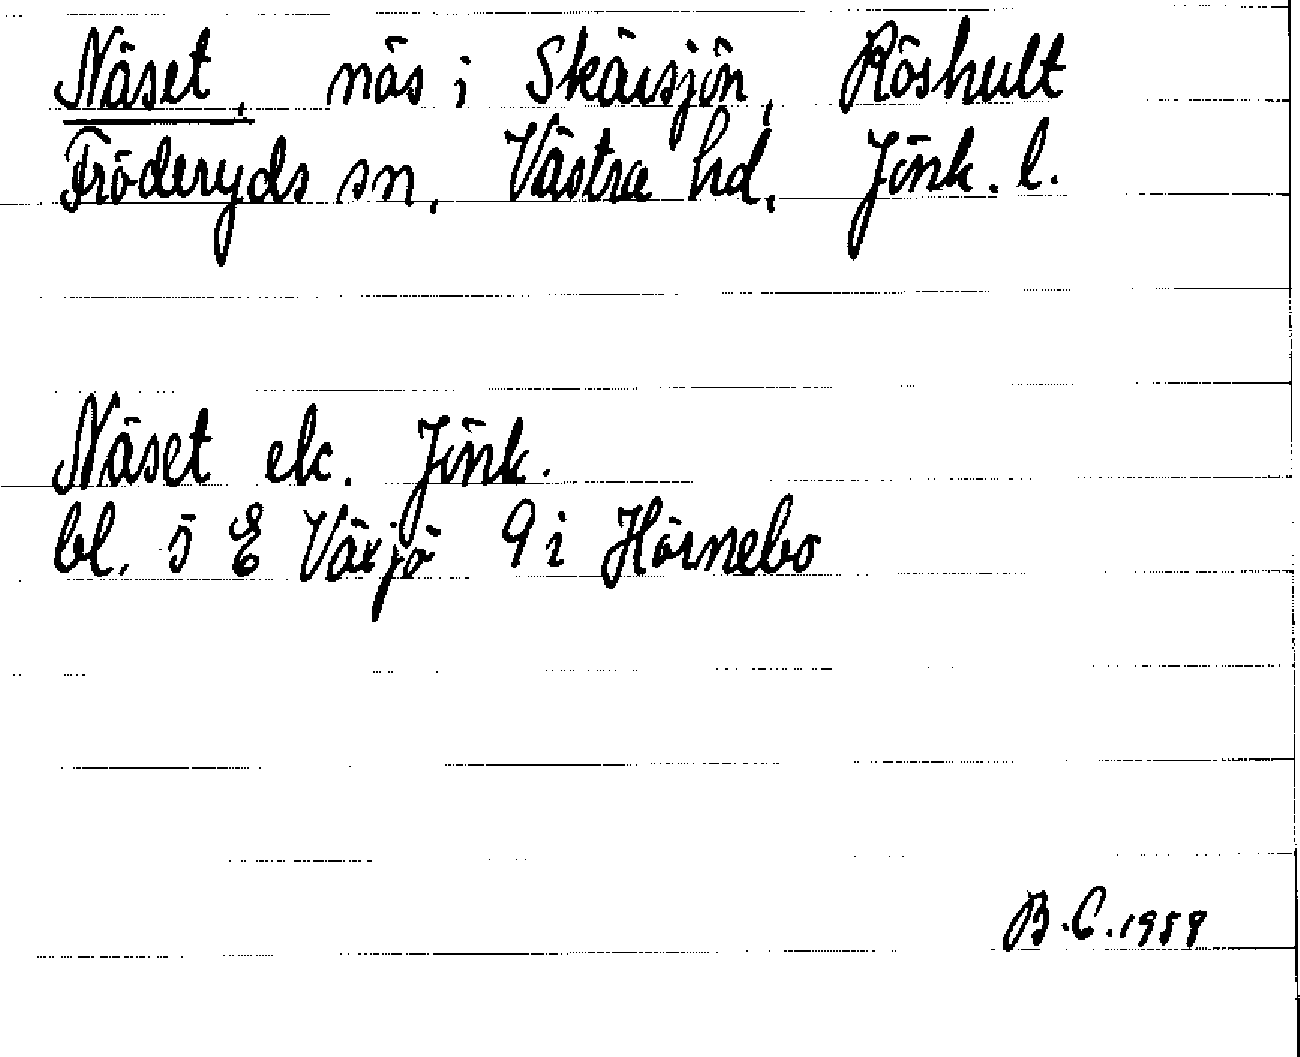 Näset, näs i Skärsjön, Röshult
Fröderyds sn, Västra hd, Jönk. l.
Näset ek. Jönk.
bl. 5 E Växjö 9 i Hörnebo
B.C. 1959